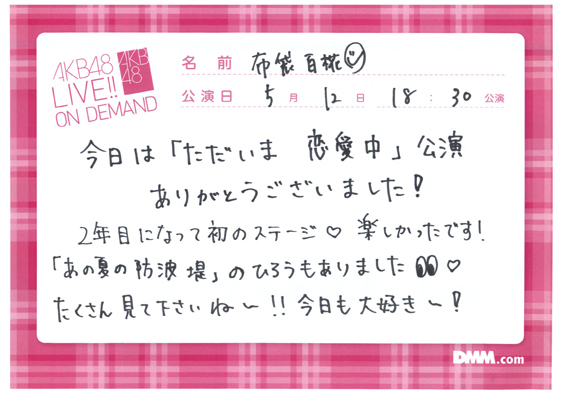 AKB48
LIVE!!
ON DEMAND
AKB
48
名前 布袋百椛
公演日 5月 12日 18:30 公演
今日は「ただいま 恋愛中」公演
ありがとうございました!
2年目になって初のステージ♡ 楽しかったです!
「あの夏の防波堤」のひろうもありました ♡
たくさん見て下さいね〜!! 今日も大好き〜!
DMM.com